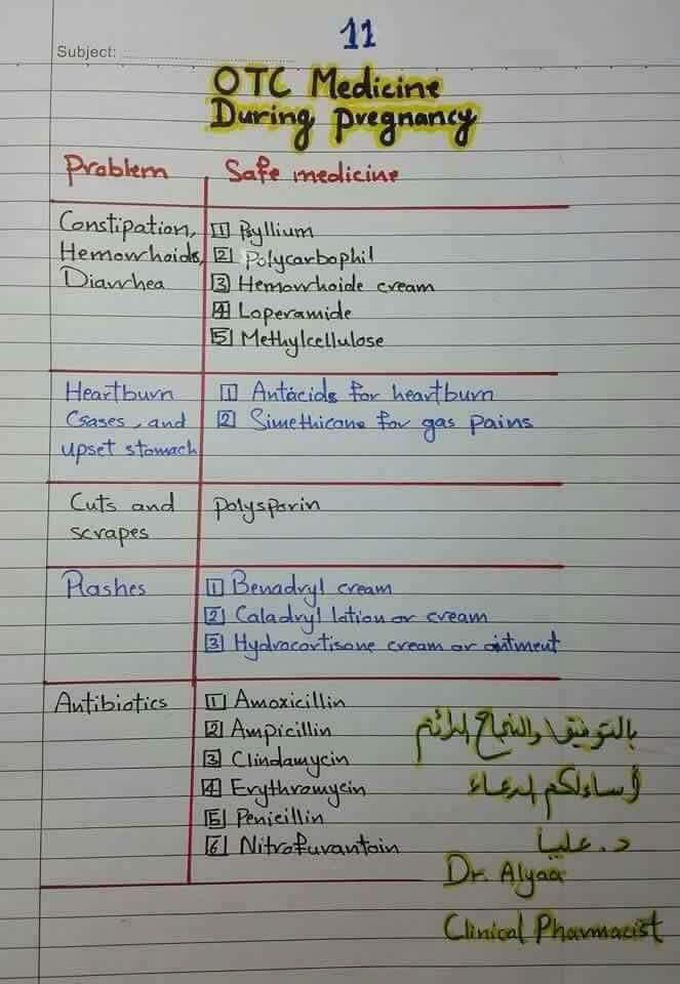 11
Subject:
OTC Medicine
During pregnancy
Problem Safe medicine
Constipation,
Hemorrhoids,
Diarrhea
1 Psyllium
2 Polycarbophil
3 Hemorrhoide cream
4 Loperamide
5 Methylcellulose
Heartburn
Gases, and
upset stomach
1 Antacids for heartburn
2 Simethicone for gas pains
Cuts and
scrapes
polysporin
Rashes
1 Benadryl cream
2 Caladryl lotion or cream
3 Hydrocortisone cream or ointment
Antibiotics
1 Amoxicillin
2 Ampicillin
3 Clindamycin
4 Erythromycin
5 Penicillin
6 Nitrofurantoin
بالتوفيق والنجاح الدائم
أسألكم الدعاء
د. عليا
Dr. Alyaa
Clinical Pharmacist